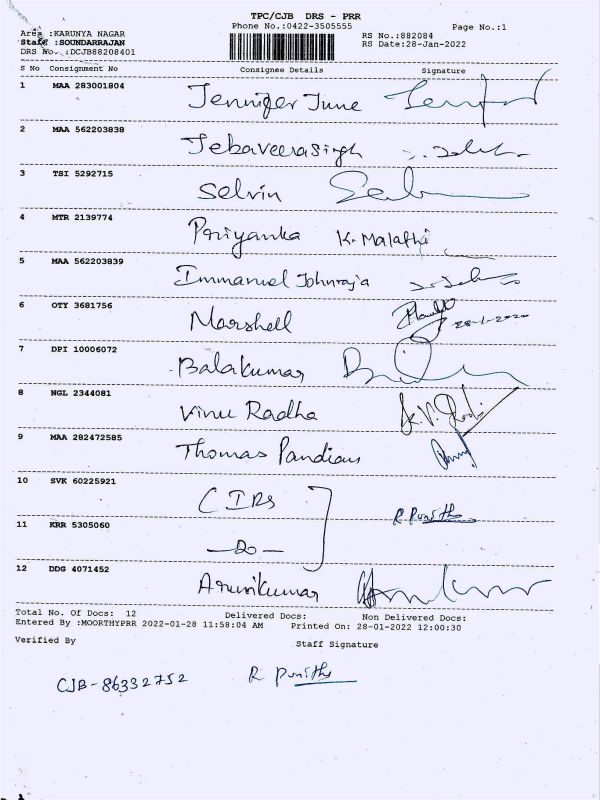 TPC/CJB DRS - PRR
Phone No.:0422-3505555 Page No.:1
Area :KARUNYA NAGAR
Staff :SOUNDARRAJAN RS No.:882084
DRS No. :DCJB88208401 RS Date:28-Jan-2022
S No Consignment No Consignee Details Signature
1 MAA 283001804 Jennifer June
2 MAA 562203838 Jebaveerasingh
3 TSI 5292715 Selvin
4 MTR 2139774 Priyanka K. Malathi
5 MAA 562203839 Immanuel Johnraja
6 OTY 3681756 Marshell
28-1-2020
7 DPI 10006072 Balakumar
8 NGL 2344081 Vinu Radha
9 MAA 282472585 Thomas Pandian
10 SVK 60225921 CIRs R Punitha
11 KRR 5305060 -Do-
12 DDG 4071452 Arunkumar
Total No. Of Docs: 12 Delivered Docs: Non Delivered Docs:
Entered By :MOORTHYPRR 2022-01-28 11:58:04 AM Printed On: 28-01-2022 12:00:30
Verified By Staff Signature
CJB-86332752 R Punitha